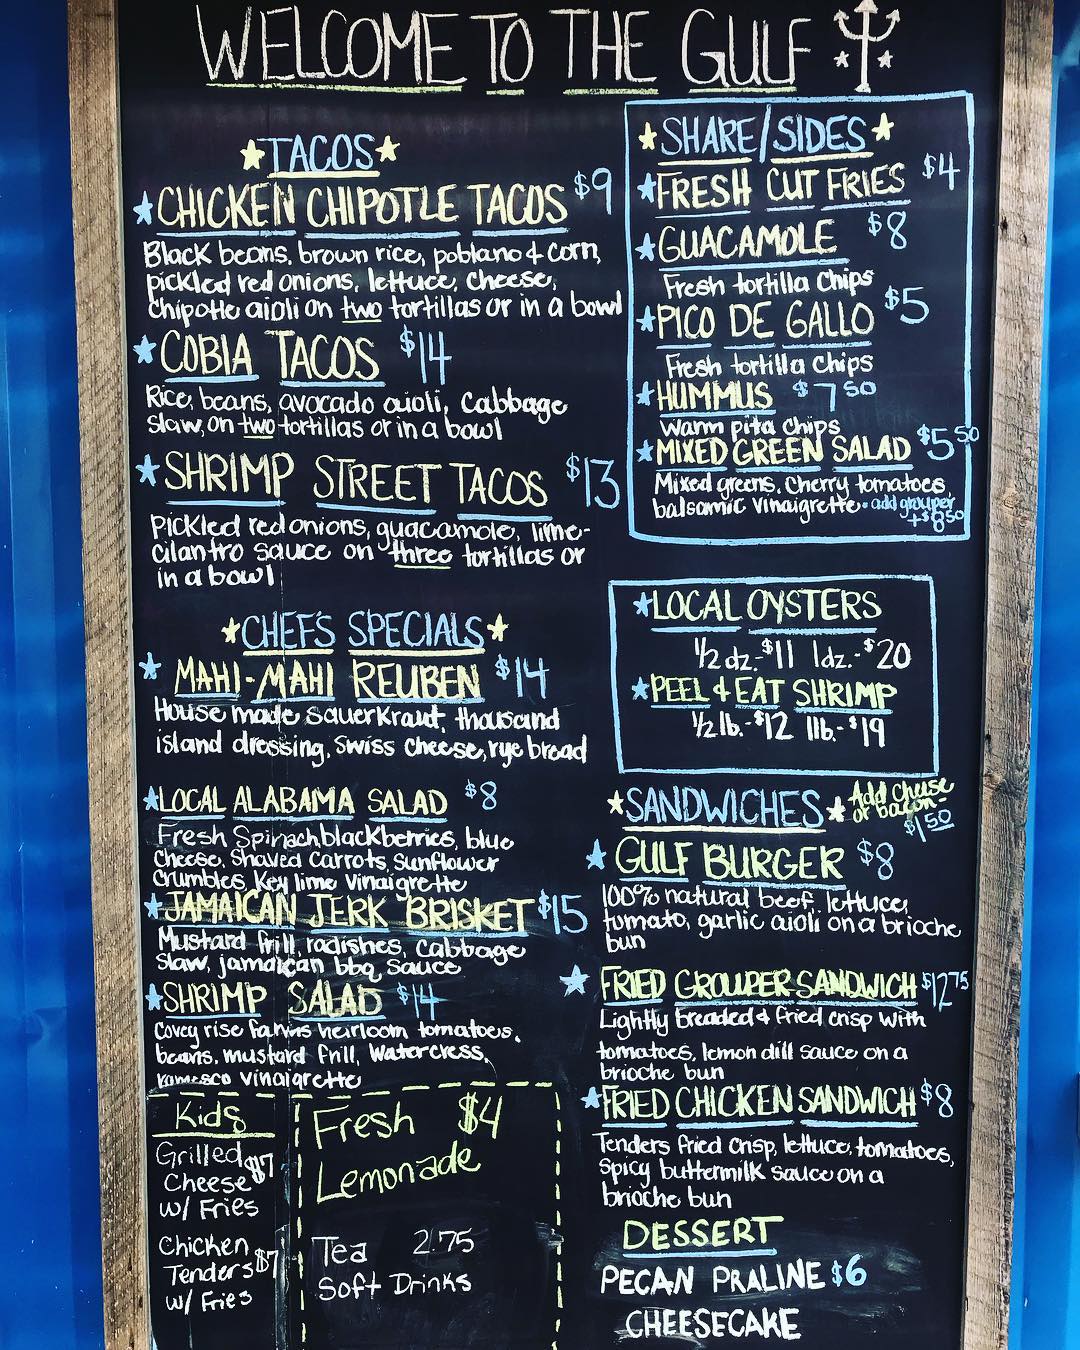 WELCOME TO THE GULF
★TACOS★
★CHICKEN CHIPOTLE TACOS $9
Black beans, brown rice, poblano & corn,
pickled red onions, lettuce, cheese,
chipotle aioli on two tortillas or in a bowl
★COBIA TACOS $14
Rice, beans, avocado aioli, cabbage
slaw, on two tortillas or in a bowl
★SHRIMP STREET TACOS $13
Pickled red onions, guacamole, lime-
cilantro sauce on three tortillas or
in a bowl
★CHEF'S SPECIALS★
★MAHI-MAHI REUBEN $14
House made sauerkraut, thousand
island dressing, swiss cheese, rye bread
★LOCAL ALABAMA SALAD $8
Fresh Spinach, blackberries, blue
cheese, shaved carrots, sunflower
crumbles, Key lime vinaigrette
★JAMAICAN JERK BRISKET $15
Mustard frill, radishes, cabbage
slaw, jamaican bbq sauce
★SHRIMP SALAD $14
Covey rise farms heirloom tomatoes,
beans, mustard frill, watercress,
romesco vinaigrette
Kids
Grilled $7
Cheese
w/ Fries
Chicken
Tenders $7
w/ Fries
Fresh $4
Lemonade
Tea 2.75
Soft Drinks
★SHARE/SIDES★
★FRESH CUT FRIES $4
★GUACAMOLE $8
Fresh tortilla chips
★PICO DE GALLO $5
Fresh tortilla chips
★HUMMUS $7 50
Warm pita chips
★MIXED GREEN SALAD $5 50
Mixed greens, cherry tomatoes,
balsamic vinaigrette • add grouper
+$8 50
★LOCAL OYSTERS
1/2 dz.-$11 1dz.-$20
★PEEL & EAT SHRIMP
1/2 lb.-$12 1lb.-$19
★SANDWICHES★ Add cheese
or bacon-
$1 50
★GULF BURGER $8
100% natural beef, lettuce,
tomato, garlic aioli on a brioche
bun
★FRIED GROUPER SANDWICH $12 75
Lightly breaded & fried crisp with
tomatoes, lemon dill sauce on a
brioche bun
★FRIED CHICKEN SANDWICH $8
Tenders fried crisp, lettuce, tomatoes,
spicy buttermilk sauce on a
brioche bun
DESSERT
PECAN PRALINE $6
CHEESECAKE